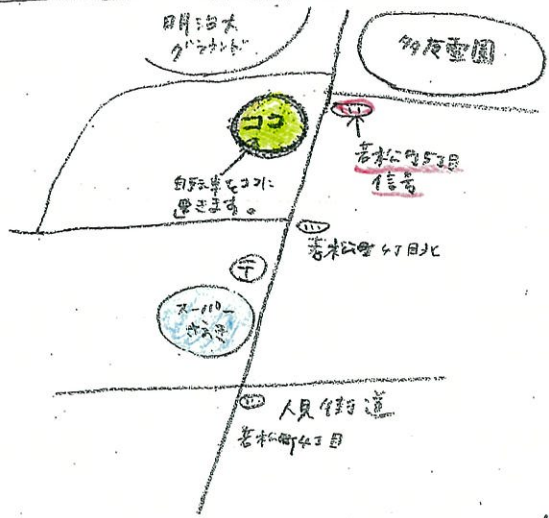 明治大
グラウンド
多摩霊園
ココ
自転車をココに
置きます。
若松町5丁目
信号
若松町4丁目北
〒
スーパー
さえき
人見街道
若松町4丁目